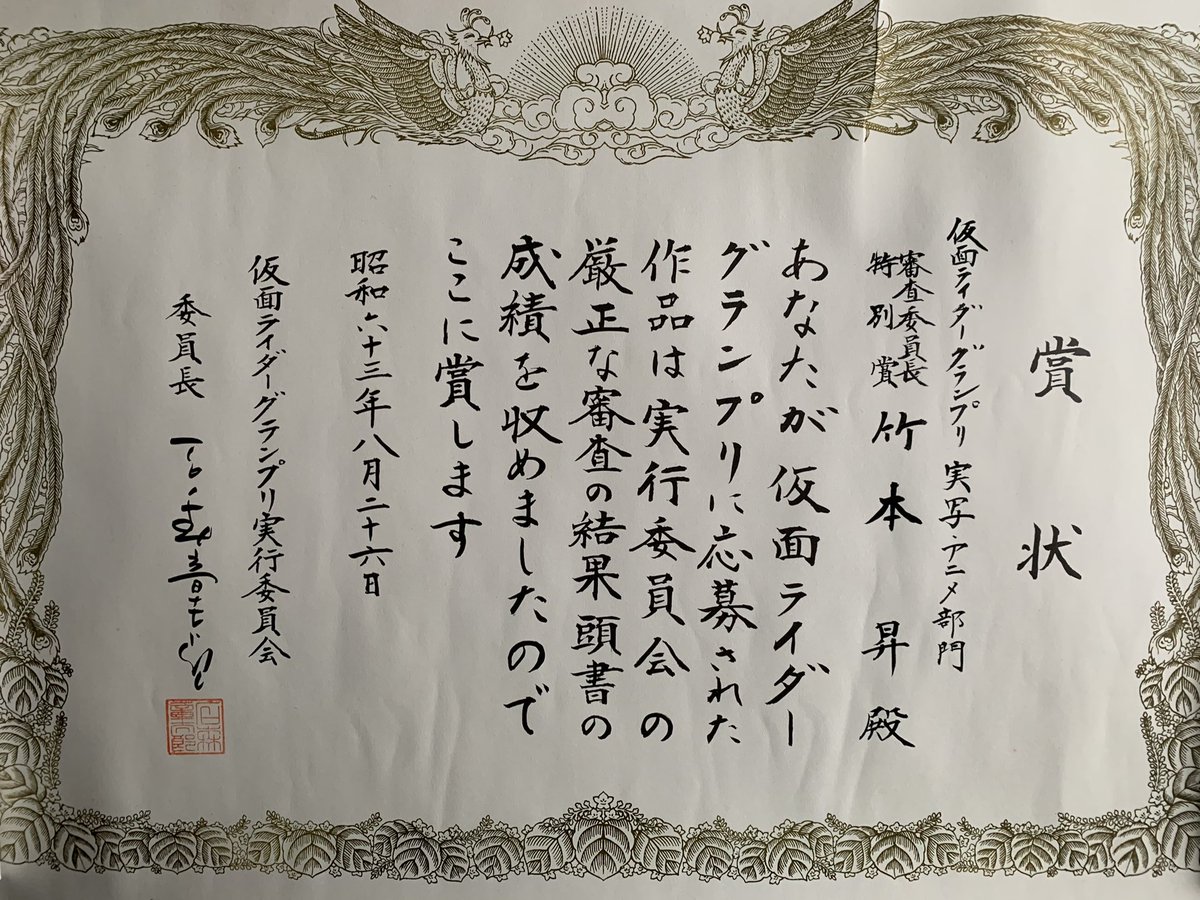 賞状
仮面ライダーグランプリ 実写・アニメ部門
審査委員長
特別賞
竹本 昇 殿
あなたが仮面ライダー
グランプリに応募された
作品は実行委員会の
厳正な審査の結果頭書の
成績を収めましたので
ここに賞します
昭和六十三年八月二十六日
仮面ライダーグランプリ実行委員会
委員長 石森章太郎